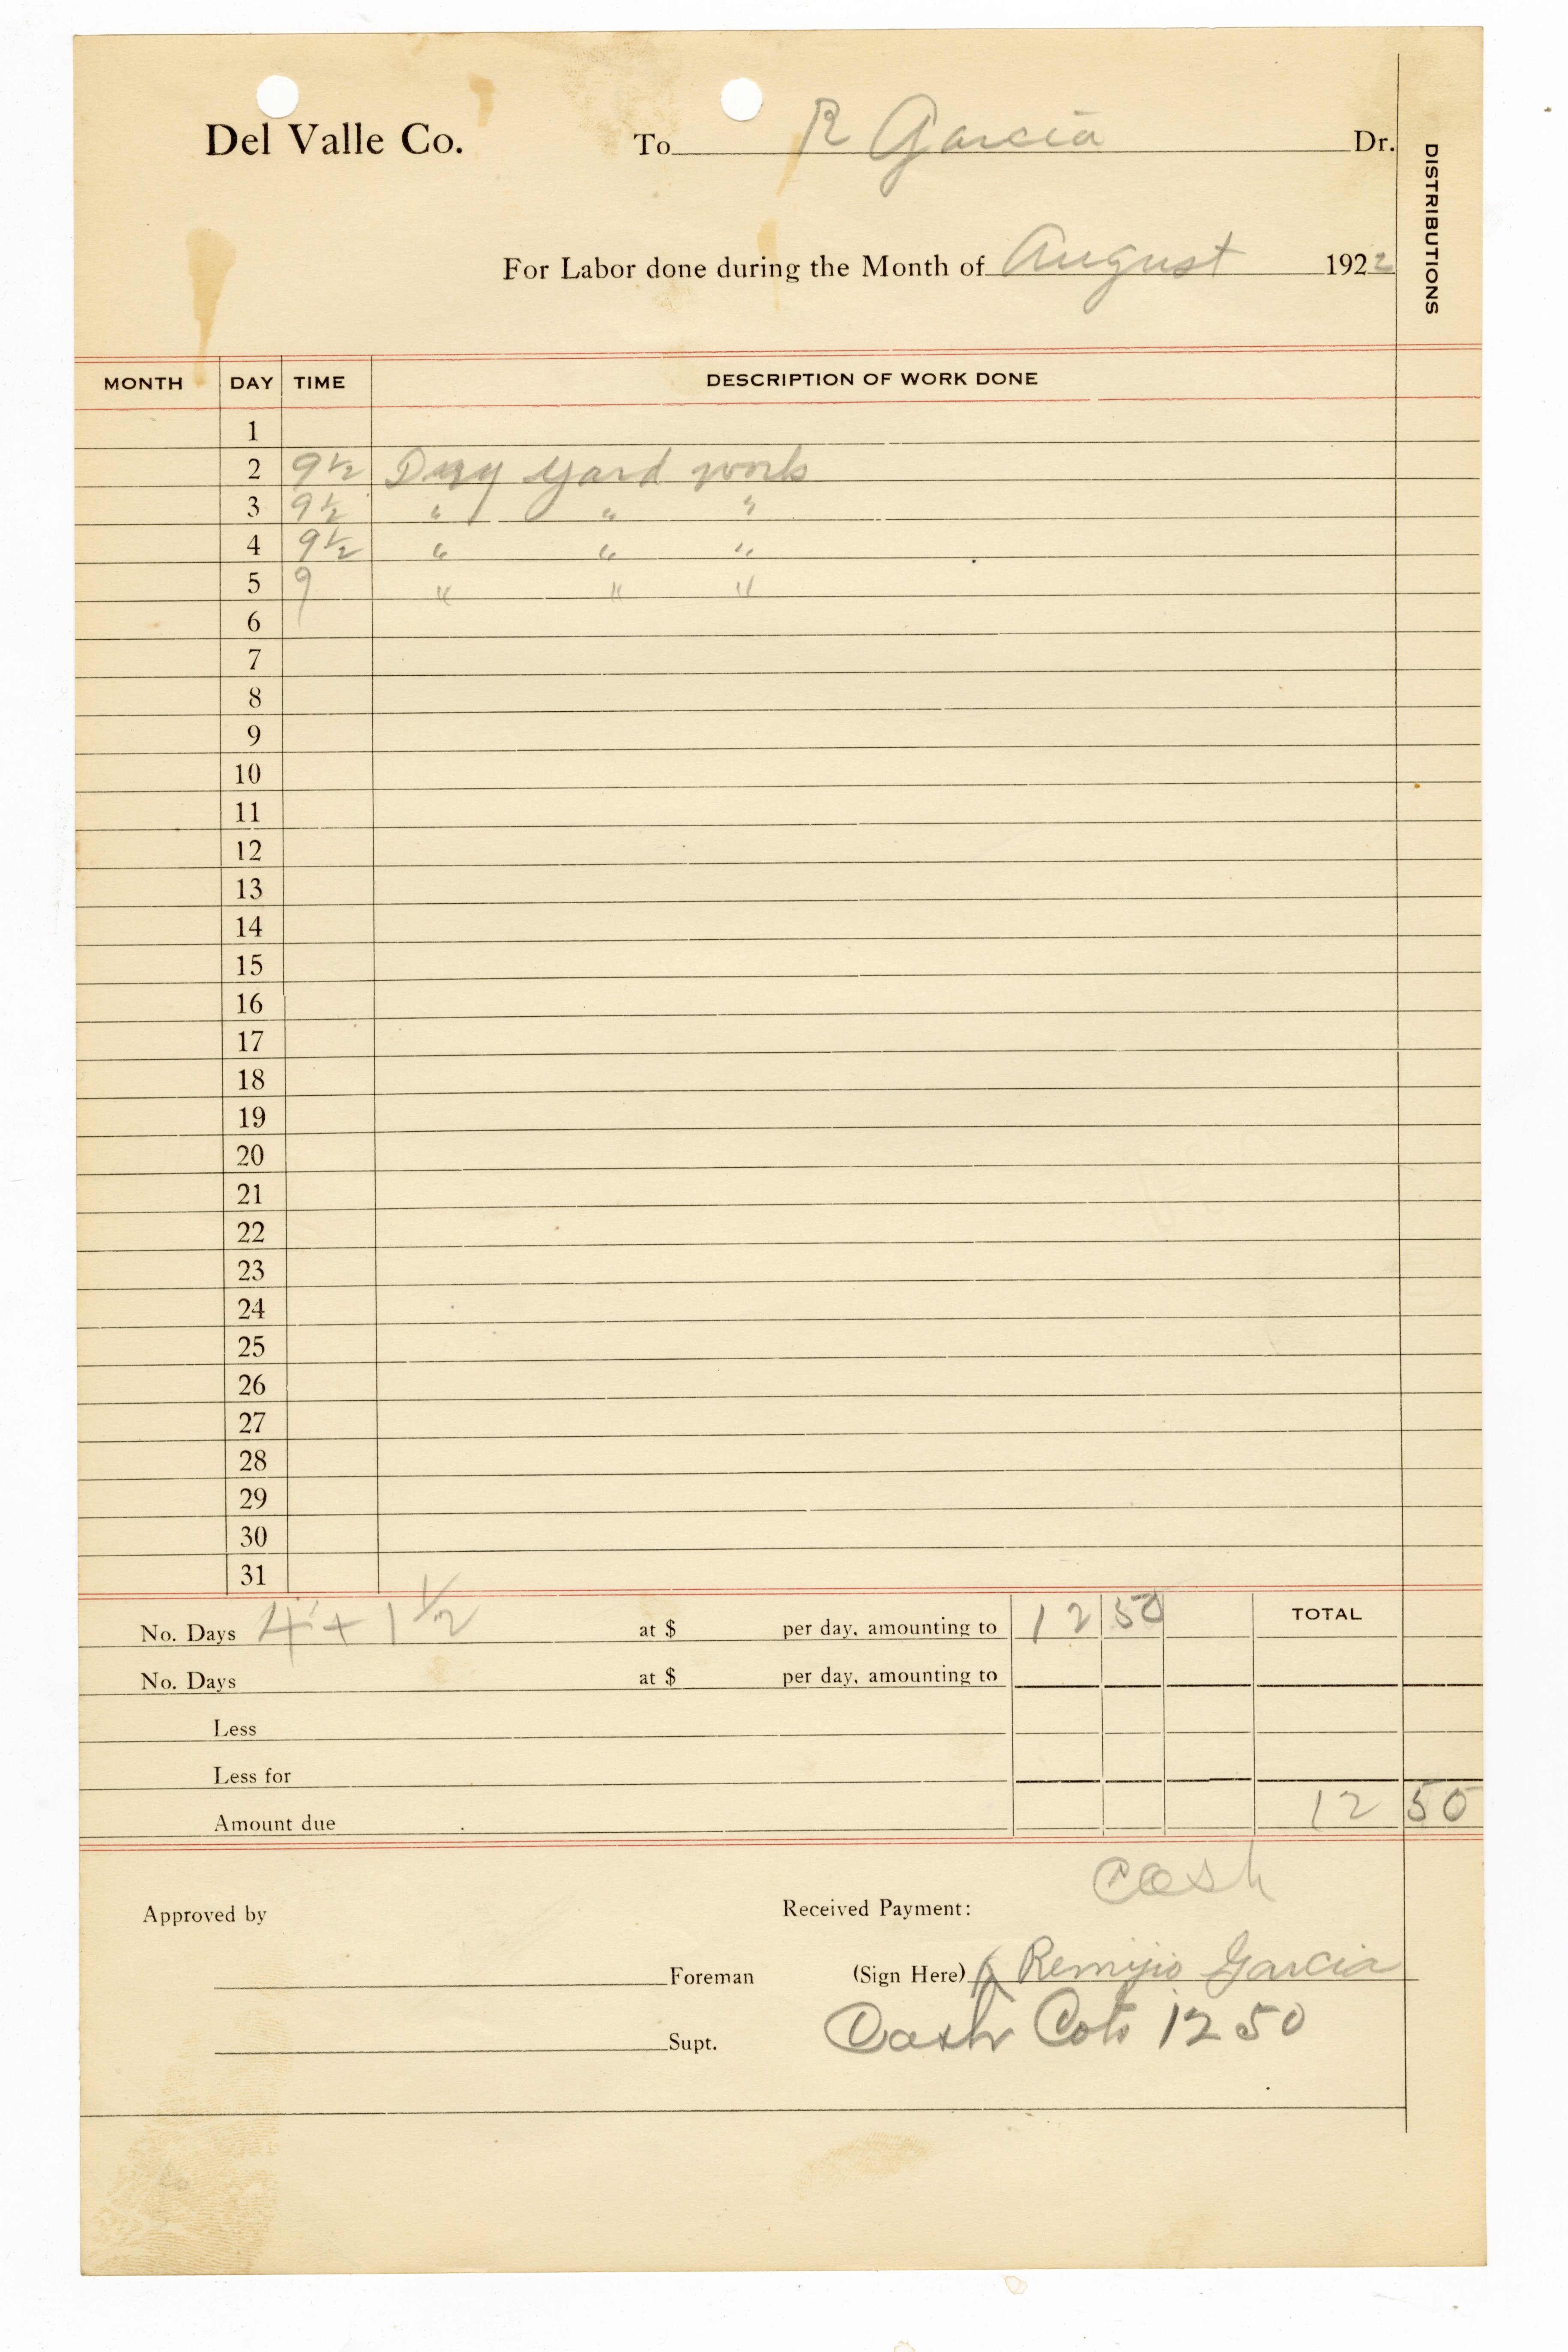 Del Valle Co. To R Garcia Dr.
DISTRIBUTIONS
For Labor done during the Month of August 1922
MONTH DAY TIME DESCRIPTION OF WORK DONE
1
2 9½ Dry yard work
3 9½ " " "
4 9½ " " "
5 9 " " "
6
7
8
9
10
11
12
13
14
15
16
17
18
19
20
21
22
23
24
25
26
27
28
29
30
31
No. Days 4 + 1½ at $ per day, amounting to 12 50 TOTAL
No. Days at $ per day, amounting to
Less
Less for
Amount due 12 50
Cash
Approved by Received Payment:
Foreman (Sign Here) Remijio Garcia
Supt. Cash Cots 12 50